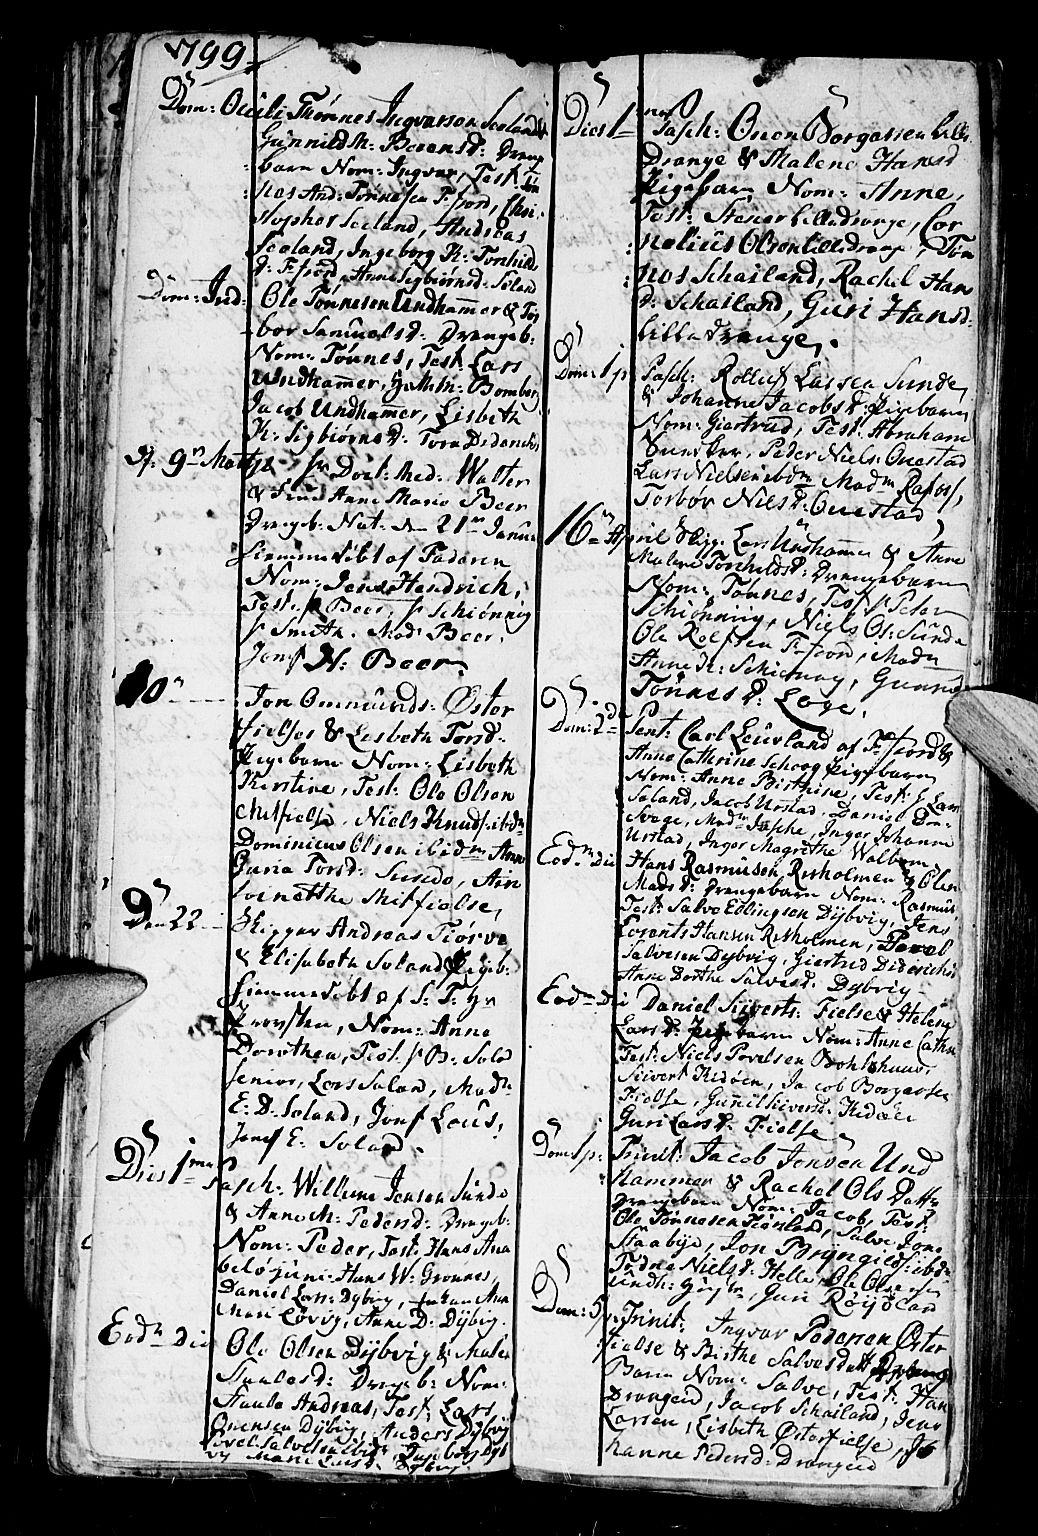 1799
Dom: Oculi Tönnes Ingvarson Seeland &
Gunnild M: Berensd: Dreng
barn Nom: Ingvar, Test: Tön
nes And: Tönnesen F:fjord, Chri
stopher Seeland, Andreas
Seeland, Ingeborg K: Tönnild
d: F:fjord, Anne Sigbiörnsd: Seland
Dom: Jud: Ole Tönnesen Undhammer & Tor
bor Samuelsd: Drengeb:
Nom: Tönnes, Test: Lars
Undhammer, Bomberg
Jacob Undhammer, Lisbeth
K: Sigbiörnsd: Tora Didrichs
d: 9n Martj Hr Doct: Med: Walter
& Frue Anne Marie Beer
Drengb: Nat: den 21n Janu
hiemmedöbt af Faderen
Nom: Jens Hendrich,
Test: Hr Beer, Hr Schiönnig
Hr Smith. Mad: Beer,
Jomf N: Beer
10n Jon Ommunds: Öster
fielse & Lisbeth Torsd.
Pigebarn Nom: Lisbeth
Kirstine, Test: Ole Olsen
Mitfielse, Niels Knuds: ibdm
Dominicus Olsen ibidm Anne
Guria Torsd: Sunde, Ane
Mitfielse,
Dn 22 Skipper Andreas Tiörve
& Elisabeth Soland Pigeb:
hiemmedöbt af S: T: Hr
Provsten, Nom: Anne
Dorothea, Test: Hr B: Solad
senior, Lars Saland, Madm
E: D: Soland, Jomf Lous,
Jomf E: Soland.
Dies 1ma Pasch: Willum Jensen Sunde
& Anne M: Pedersd: Drengeb:
Nom: Peder, Test: Hans Ana
belö juni: Hans W: Grönnes,
Daniel Lars: Dybvig, Ane
Mari Lövig, Anne D: Dybvig.
Eodm Die Ole Olsen Dijbvig & Malen
Staalesd: Drengeb: Nom:
Staale Andreas, Test: Lars
Onensen Dijbvig, Anders Dijbvig
Povel Salvesen ibidm Dyb
vig Mari Larsd: Dybvig
Dies 1ma Pasch: Onen Borgersen Lille
Drange & Malene Hansd
Pigebarn Nom: Anne,
Test: Stener Lilledrange, Cor
nelius Olsen Lilledrange, Tön
nes Schailand, Rachel Han
d: Schailand, Guri Hansd:
Lilledrange.
Dom: 1 p Pasch: Rolluf Larsen Sunde
& Johanne Jacobsd: Pigebarn
Nom: Giertrud, Test: Abraham
Peder Niels: Onestad
Lars Nielsen ibdm Madm Rafoss,
Torbor Nielsd: Onestad
16n April Lars Undhammer & Anne
Malene Tönnildsd: Drengebarn
Nom: Tönnes, Test: Hr Peter
Schiönning, Niels Ols: Sunde
Ole Roefsen F:fjord, Madm
Anne K: Schiönning, Gunnil
Tönnesd: Loge.
Dom: 2d Pent: Carl Leuvland af F:fjord &
Anne Cathrine Schoog Pigebarn
Nom: Anne Birthine, Test: Lars
Saland, Jacob Urstad, Daniel
Svege, Madm Jasche, Inger Johanne
Urstad, Inger Magrethe Walbom
Eodm Die Hans Rasmussen Risholmen & Olen
Madsd: Drengebarn Nom: Rasmus
Test: Salve Edlingson Dijbvig, Jens
Lorents Hansen Risholmen, Povel
Salvesen Dybvig, Giertrud Didrichsd
Anne Dorthe Salvesd: Dybvig
Eodm Die Daniel Siverts: Fielse & Helene
Larsd: Pigebarn Nom: Anne Cathr:
Test: Niels Povelsen Bohlshavn,
Sivert Kidöen, Jacob Borgersen
Fielse, Gunil Siversd: Kidöen
Guri Larsd: Fielse
Dom: 1 p: Trinit: Jacob Jensen Und
hammer & Rachel Ols Datter
Drengebarn Nom: Jacob, Test:
Ole Tönnesen Seeland, Salve Jons
Staabije, Jon Bryngilds: ibdm
Todne Nielsd: Helle, Ole Olsen
Guri Röijöcar
Dom: 5 p: Trinit: Ingvar Pedersen Öster
fielse & Birthe Salvesdatt Drenge
Barn Nom: Salve, Test: Han
Drangeid, Jacob Schailand, Jens
Larsen, Lisbeth Österfielse, Jo
hanne Pedersd: Drangeid